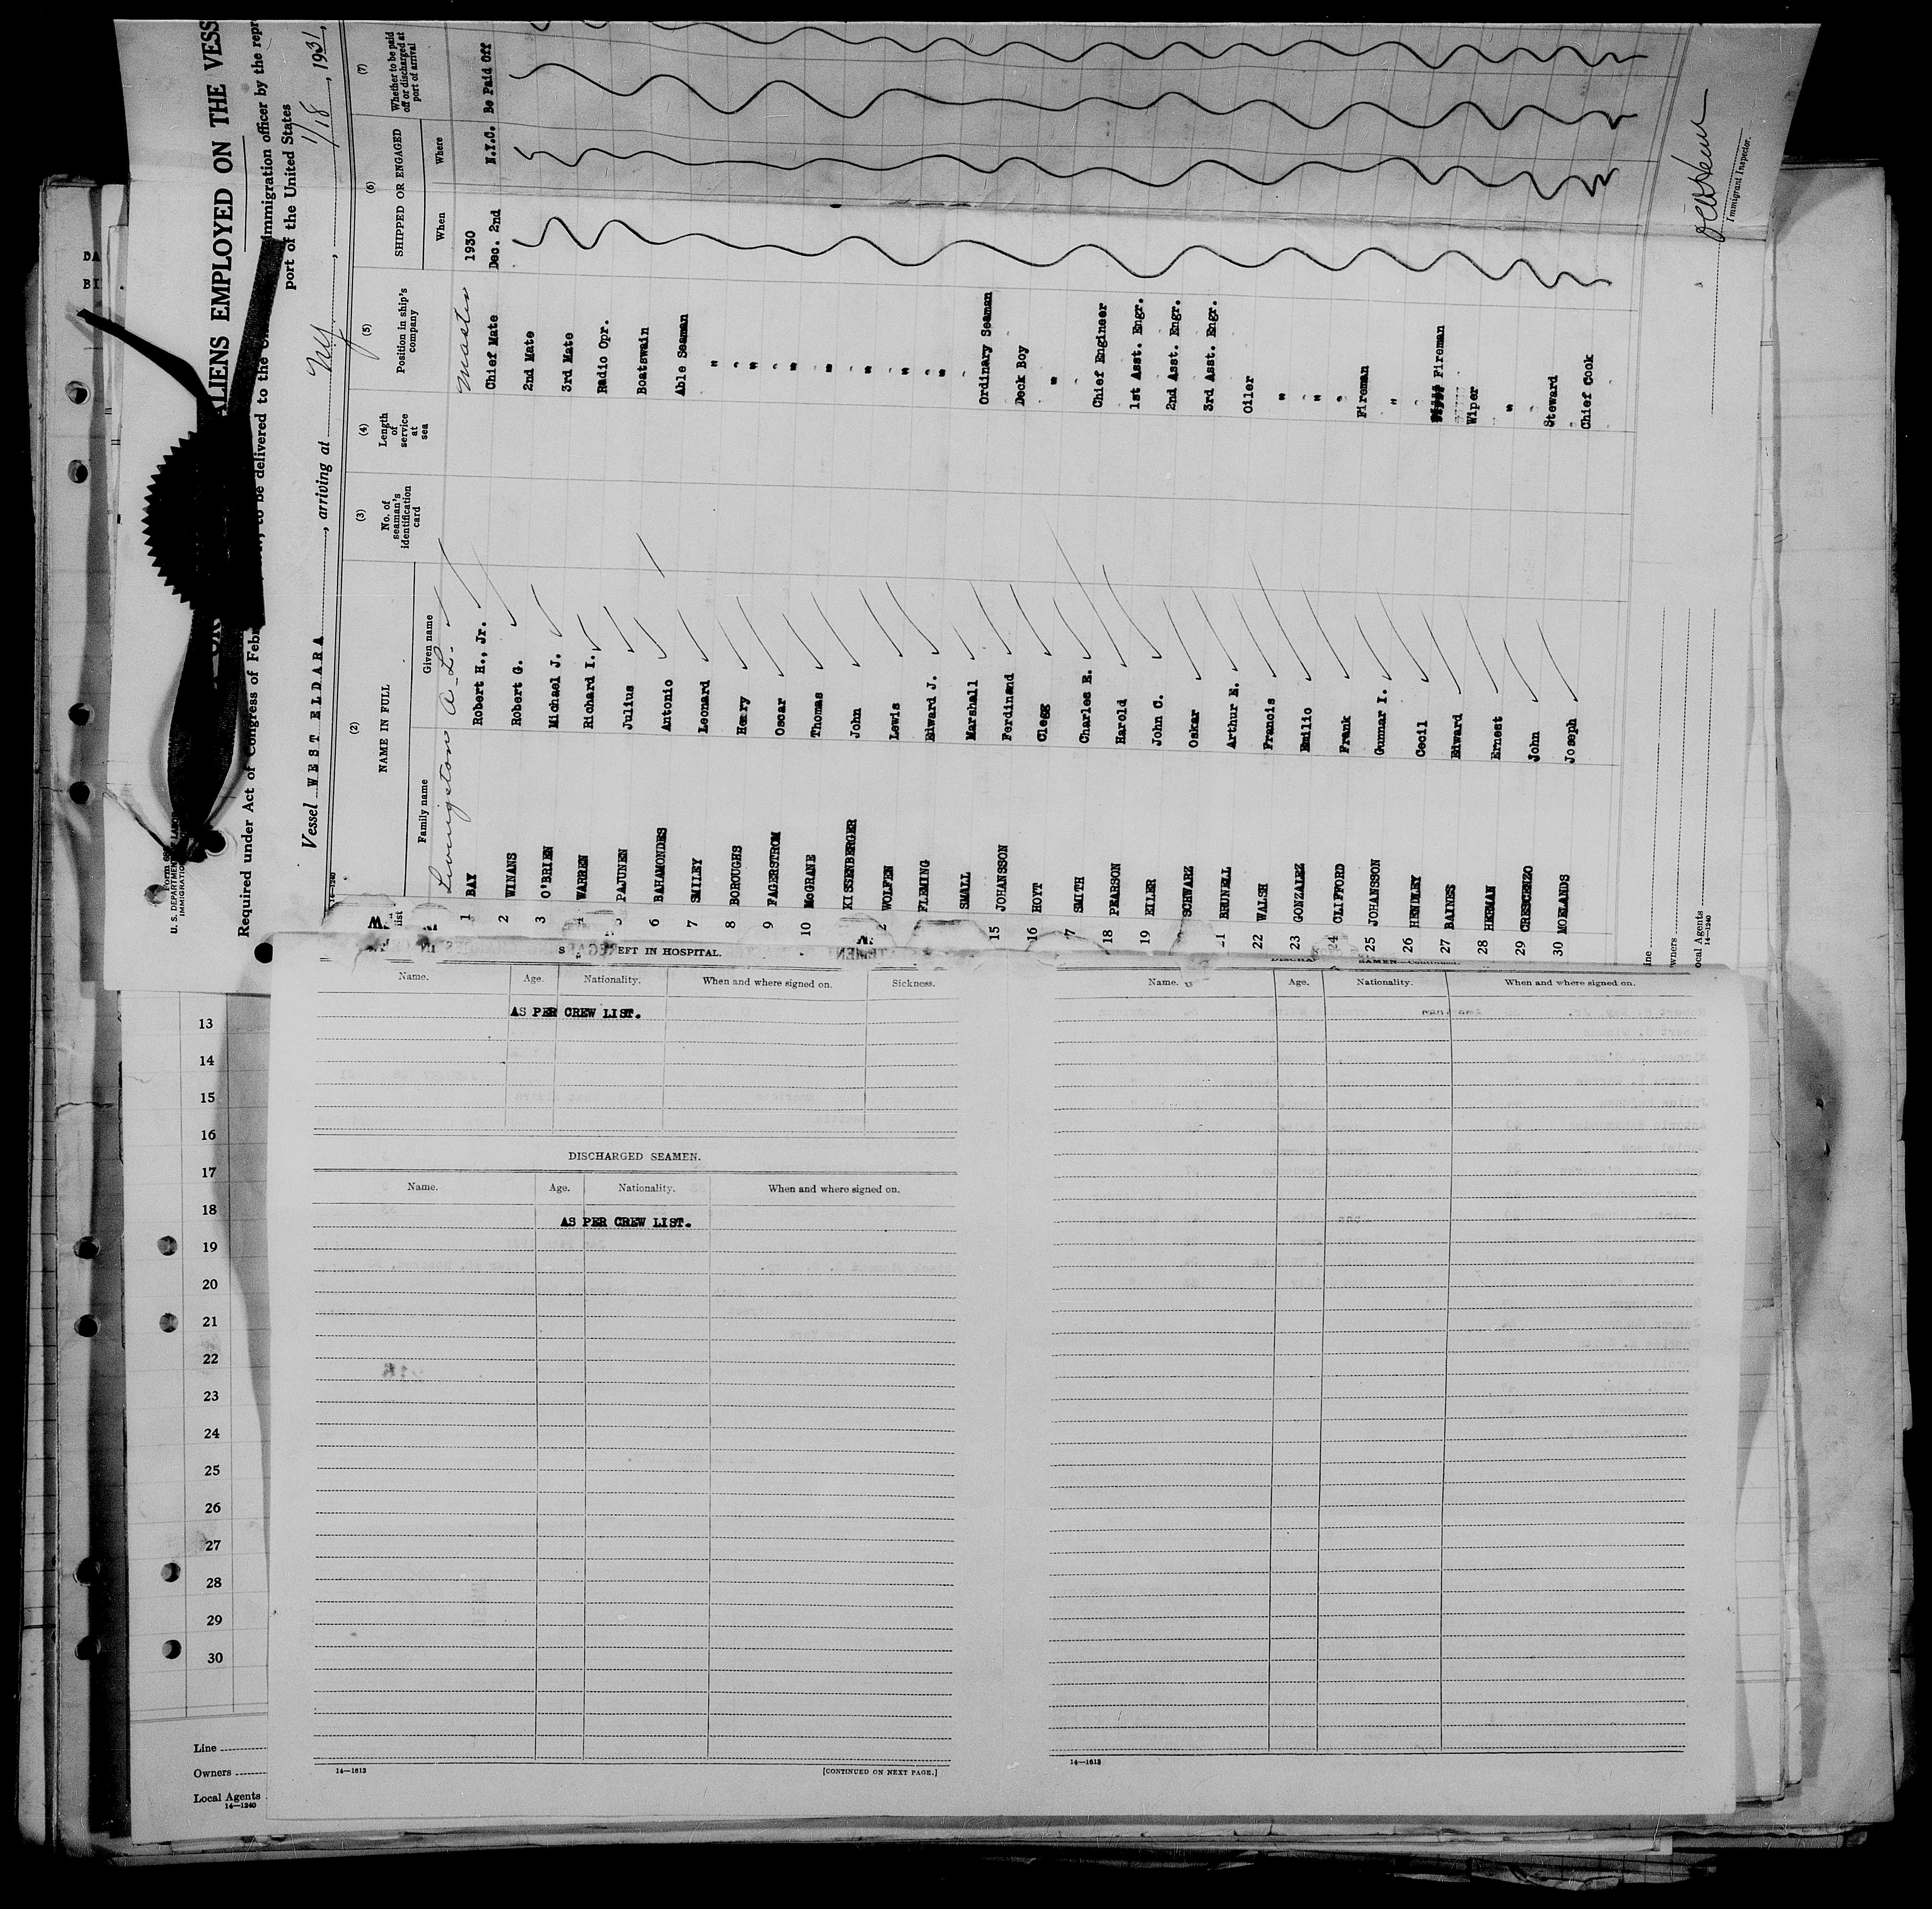 Form 689
U. S. DEPARTMENT OF LABOR
IMMIGRATION
ALIENS EMPLOYED ON THE VESS
Required under Act of Congress of Febr
to be delivered to the
immigration officer by the repr
port of the United States
Vessel WEST ELDARA, arriving at N.Y., 1/18, 1931,
14-1240
(2) (3) (4) (5) (6) (7)
NAME IN FULL
Family name Given name
No. of seaman's identification card
Length of service at sea
Position in ship's company
SHIPPED OR ENGAGED
When Where
Whether to be paid off or discharged at port of arrival
list
Livingston A. L. Master 1930
1 BAY Robert H., Jr. Chief Mate Dec. 2nd N.Y.C. Be Paid Off
2 WINANS Robert G. 2nd Mate
3 O'BRIEN Michael J. 3rd Mate
4 WARREN Richard I. Radio Opr.
5 PAJUNEN Julius Boatswain
6 BAHAMONDES Antonio Able Seaman
7 SMILEY Leonard "
8 BOROUGHS Henry "
9 FAGERSTROM Oscar "
10 McGRANE Thomas "
KISSENBERGER John "
2 WOLFEN Lewis "
FLEMING Edward J. "
SMALL Marshall Ordinary Seaman
15 JOHANSSON Ferdinand Deck Boy
16 HOYT Clegg "
7 SMITH Charles E. Chief Engineer
18 PEARSON Harold 1st Asst. Engr.
19 EILER John C. 2nd Asst. Engr.
SCHWARZ Oskar 3rd Asst. Engr.
21 BRUNELL Arthur E. Oiler
22 WALSH Francis "
23 GONZALEZ Emilio "
24 CLIFFORD Frank Fireman
25 JOHANSSON Gunnar I. "
26 HENDLEY Cecil Fireman
27 BAINES Edward Wiper
28 HERMAN Ernest "
29 CRESCHENZO John Steward
30 MOELANDS Joseph Chief Cook
ine
wners
ocal Agents
14-1240
Immigrant Inspector.
DA
BI
EFT IN HOSPITAL.
Name. Age. Nationality. When and where signed on. Sickness.
AS PER CREW LIST.
DISCHARGED SEAMEN.
Name. Age. Nationality. When and where signed on.
AS PER CREW LIST.
14—1613
[CONTINUED ON NEXT PAGE.]
Name. Age. Nationality. When and where signed on.
14—1613
13
14
15
16
17
18
19
20
21
22
23
24
25
26
27
28
29
30
Line
Owners
Local Agents
14—1240